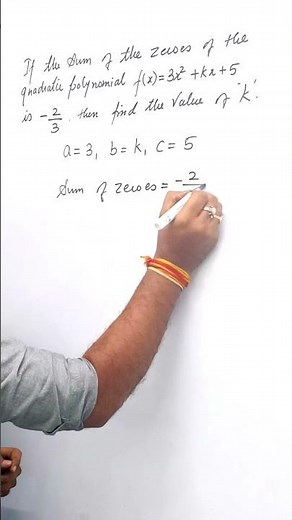 If the sum of the zeroes of the
quadratic polynomial f(x)=3x²+kx+5
is -2/3. then find the value of 'k'.
a=3, b=k, c=5
Sum of zeroes = -2/